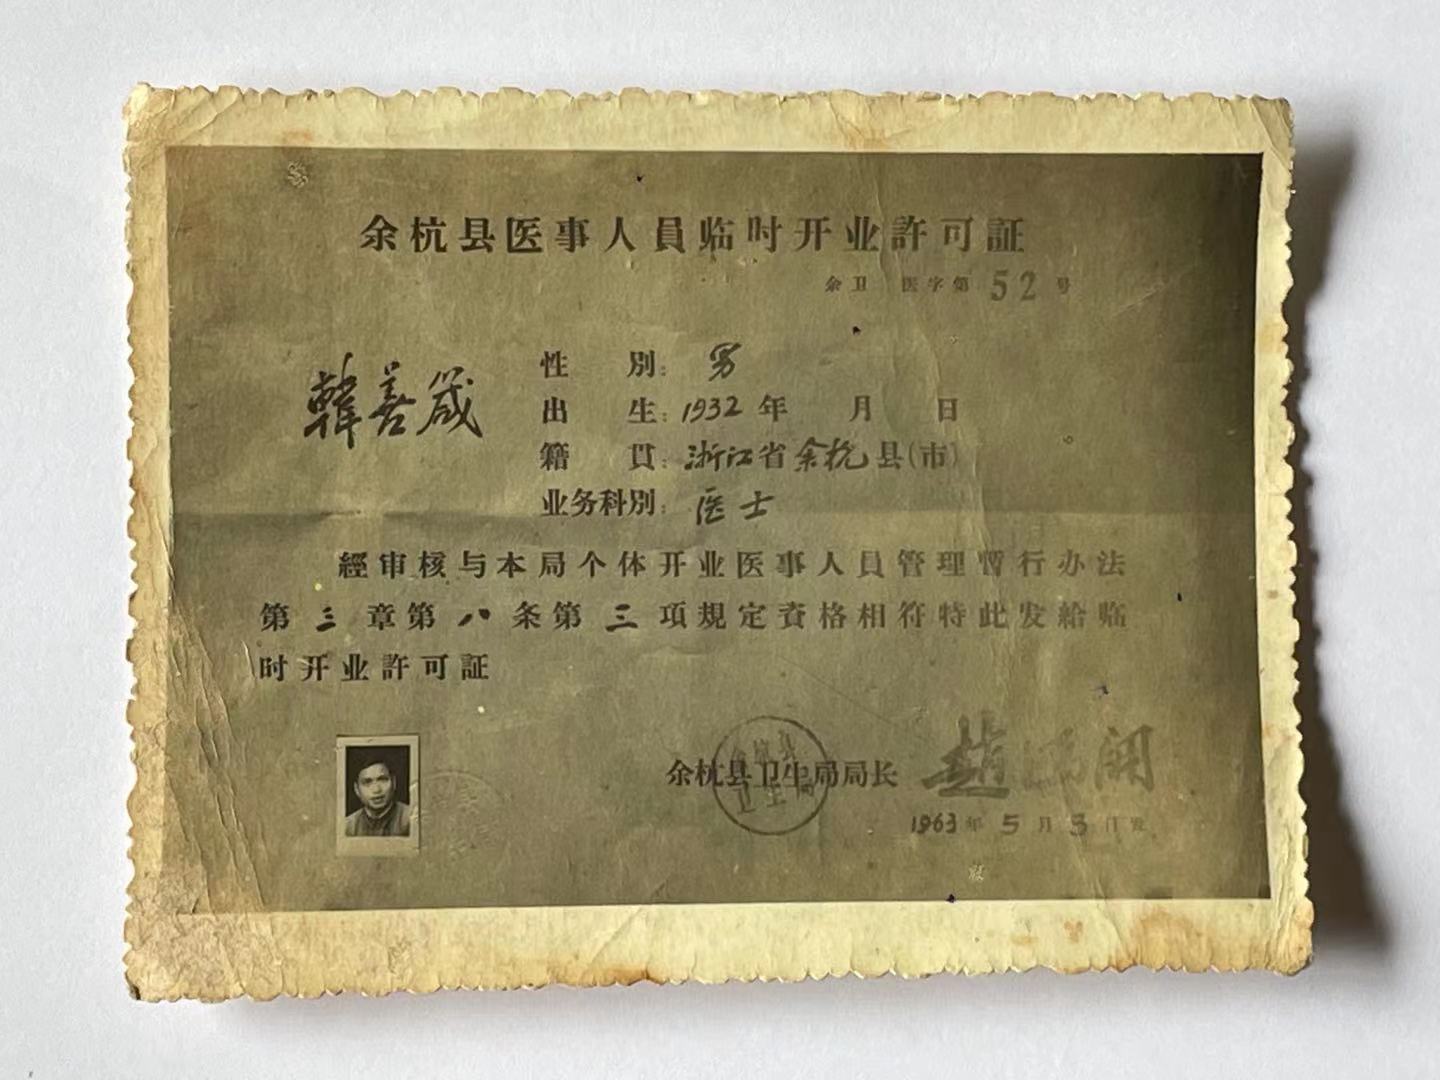 余杭县医事人員临时开业許可証
余卫 医字第52号
韓善箴
性 別：男
出 生：1932年 月 日
籍 貫：浙江省余杭县(市)
业务科別：医士
經审核与本局个体开业医事人員管理暫行办法
第三章第八条第三項規定資格相符特此发給临
时开业許可証
余杭县卫生局局长
余杭县
卫生局
1963年5月3日发